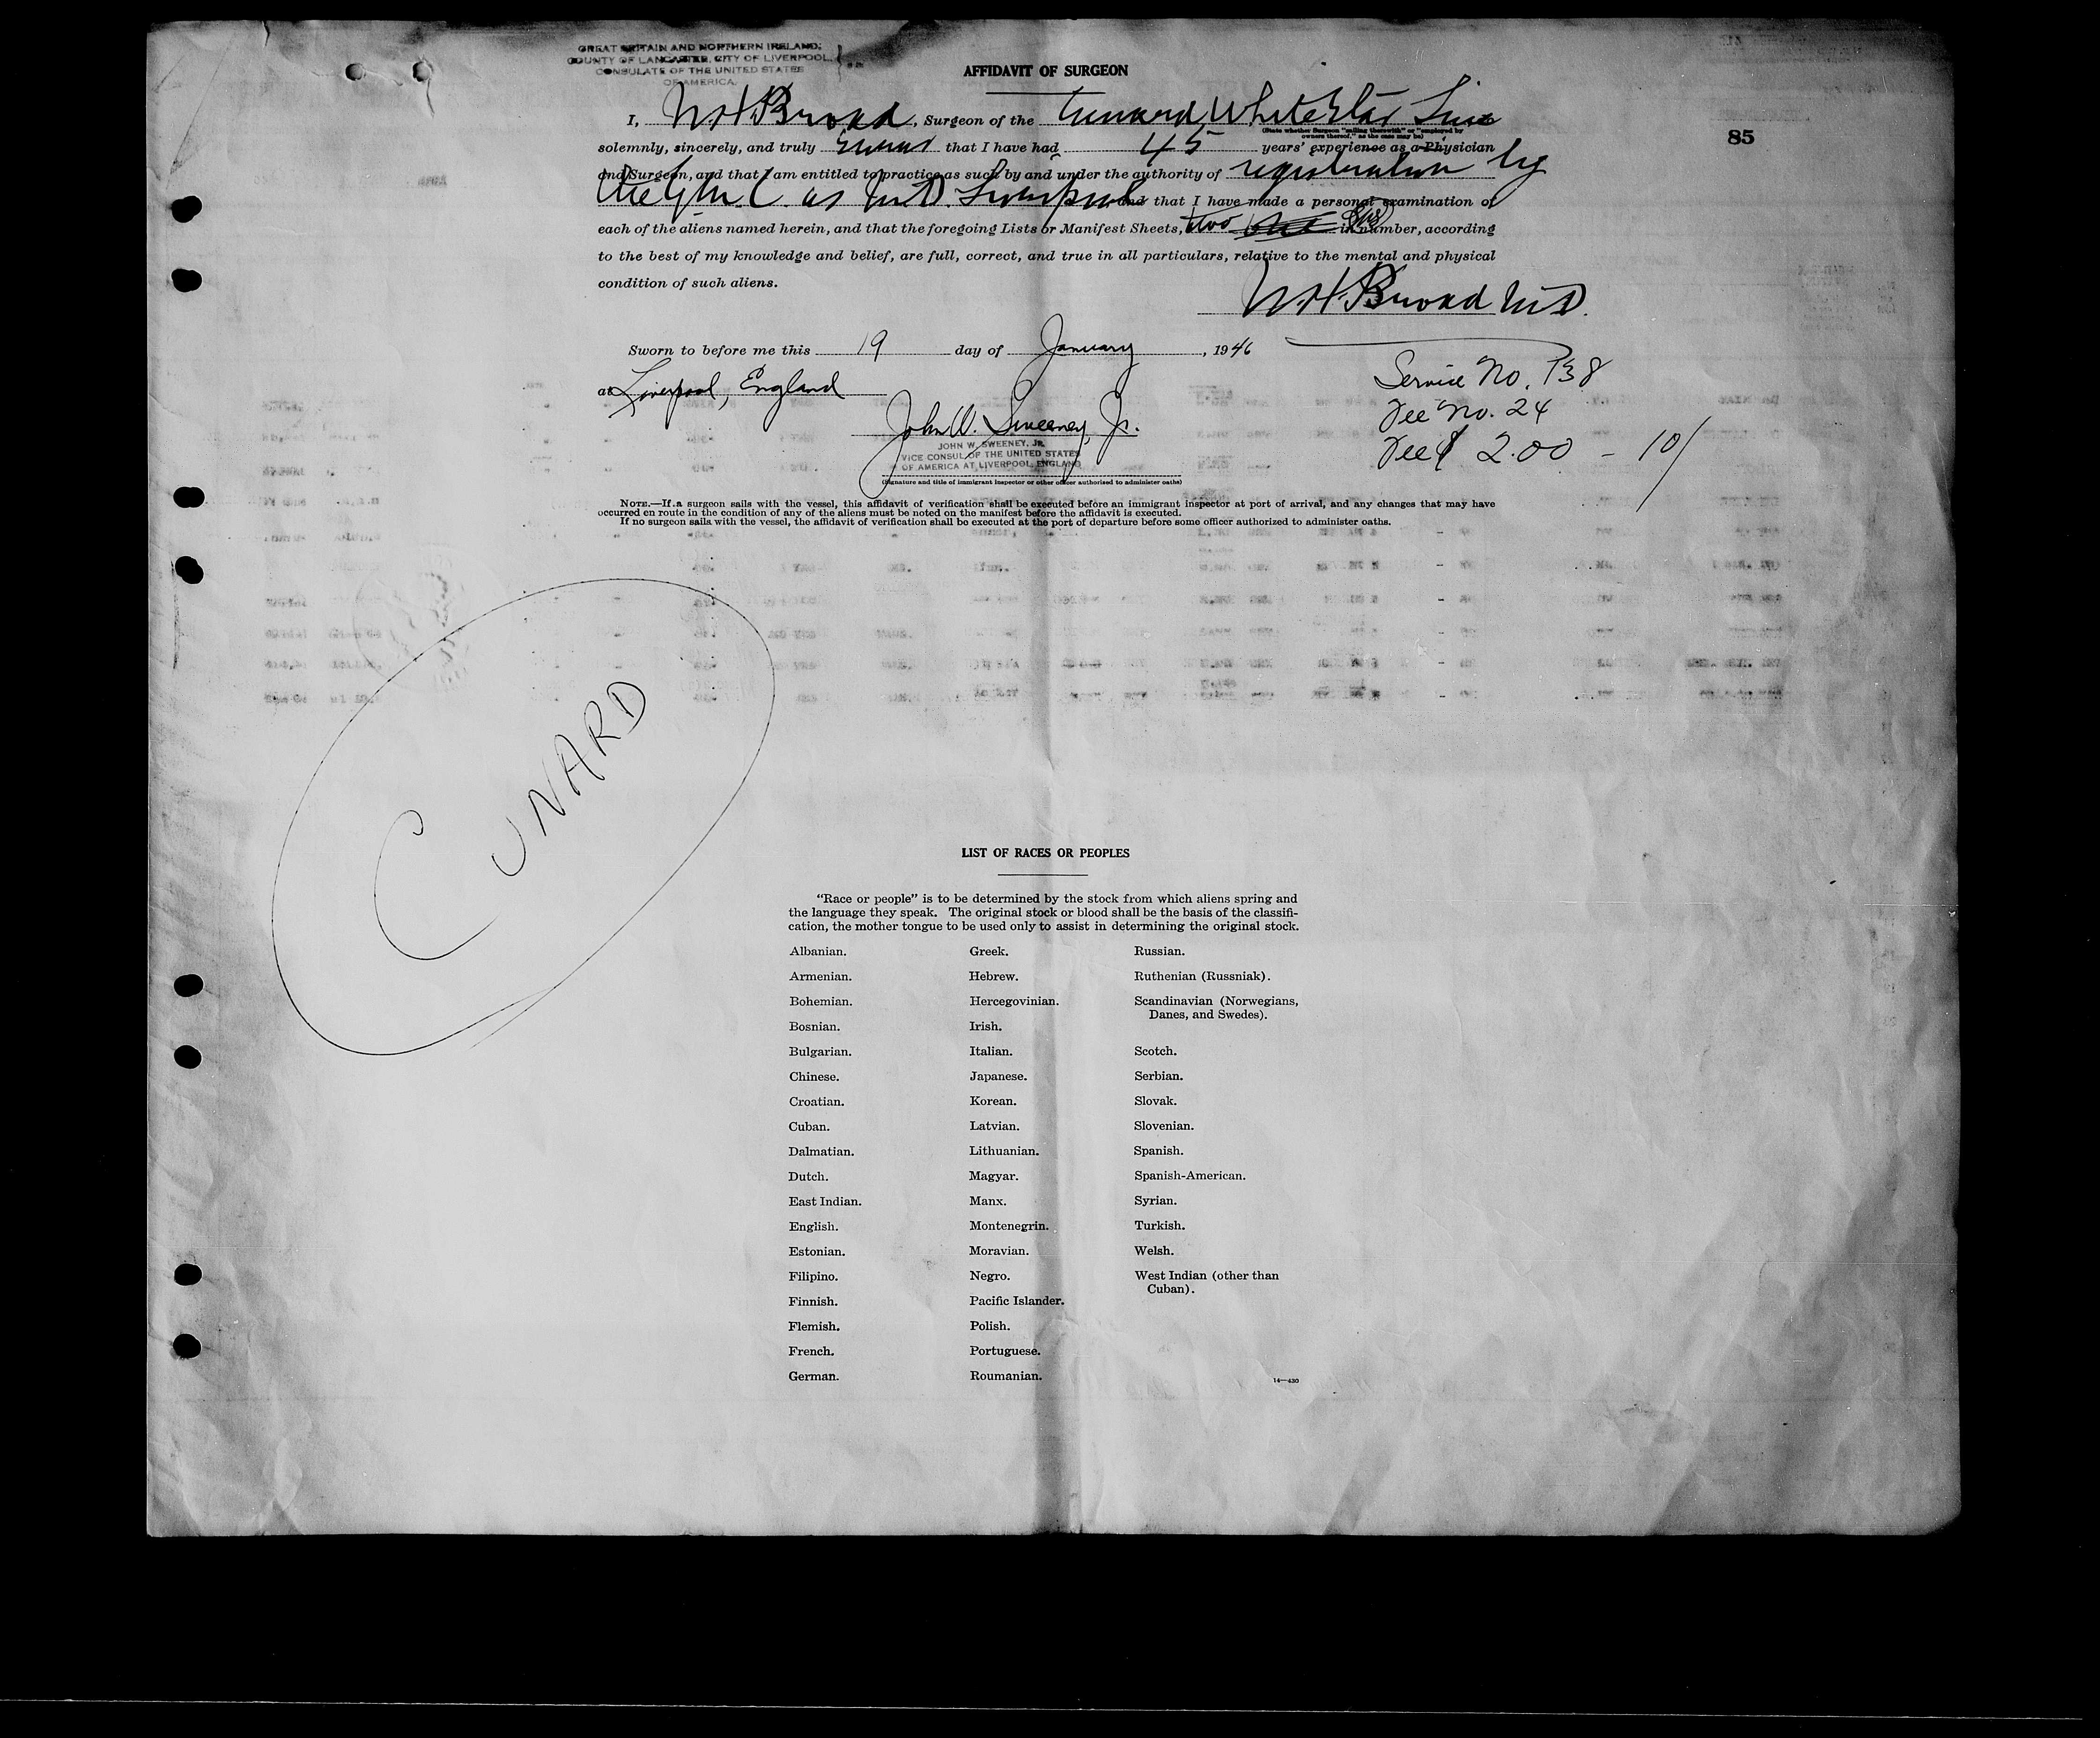 GREAT BRITAIN AND NORTHERN IRELAND,
COUNTY OF LANCASTER, CITY OF LIVERPOOL,
CONSULATE OF THE UNITED STATES
OF AMERICA.
AFFIDAVIT OF SURGEON
85
I, W H Broad, Surgeon of the Cunard White Star Line
(State whether Surgeon "sailing therewith" or "employed by
owners thereof," as the case may be)
solemnly, sincerely, and truly swear that I have had 45 years' experience as a Physician
and Surgeon, and that I am entitled to practice as such by and under the authority of registration by
the G.M.C. as M.D. Liverpool and that I have made a personal examination of
each of the aliens named herein, and that the foregoing Lists or Manifest Sheets, two one in number, according
to the best of my knowledge and belief, are full, correct, and true in all particulars, relative to the mental and physical
condition of such aliens.
W H Broad M.D.
Sworn to before me this 19 day of January, 1946
at Liverpool, England
John W. Sweeney, Jr.
JOHN W. SWEENEY, JR.
VICE CONSUL OF THE UNITED STATES
OF AMERICA AT LIVERPOOL, ENGLAND
(Signature and title of immigrant inspector or other officer authorized to administer oaths)
Service No. 138
Fee No. 24
Fee $ 2.00 - 10/
NOTE.—If a surgeon sails with the vessel, this affidavit of verification shall be executed before an immigrant inspector at port of arrival, and any changes that may have
occurred en route in the condition of any of the aliens must be noted on the manifest before the affidavit is executed.
If no surgeon sails with the vessel, the affidavit of verification shall be executed at the port of departure before some officer authorized to administer oaths.
CUNARD
LIST OF RACES OR PEOPLES
"Race or people" is to be determined by the stock from which aliens spring and
the language they speak. The original stock or blood shall be the basis of the classifi-
cation, the mother tongue to be used only to assist in determining the original stock.
Albanian.
Armenian.
Bohemian.
Bosnian.
Bulgarian.
Chinese.
Croatian.
Cuban.
Dalmatian.
Dutch.
East Indian.
English.
Estonian.
Filipino.
Finnish.
Flemish.
French.
German.
Greek.
Hebrew.
Hercegovinian.
Irish.
Italian.
Japanese.
Korean.
Latvian.
Lithuanian.
Magyar.
Manx.
Montenegrin.
Moravian.
Negro.
Pacific Islander.
Polish.
Portuguese.
Roumanian.
Russian.
Ruthenian (Russniak).
Scandinavian (Norwegians,
Danes, and Swedes).
Scotch.
Serbian.
Slovak.
Slovenian.
Spanish.
Spanish-American.
Syrian.
Turkish.
Welsh.
West Indian (other than
Cuban).
14—430